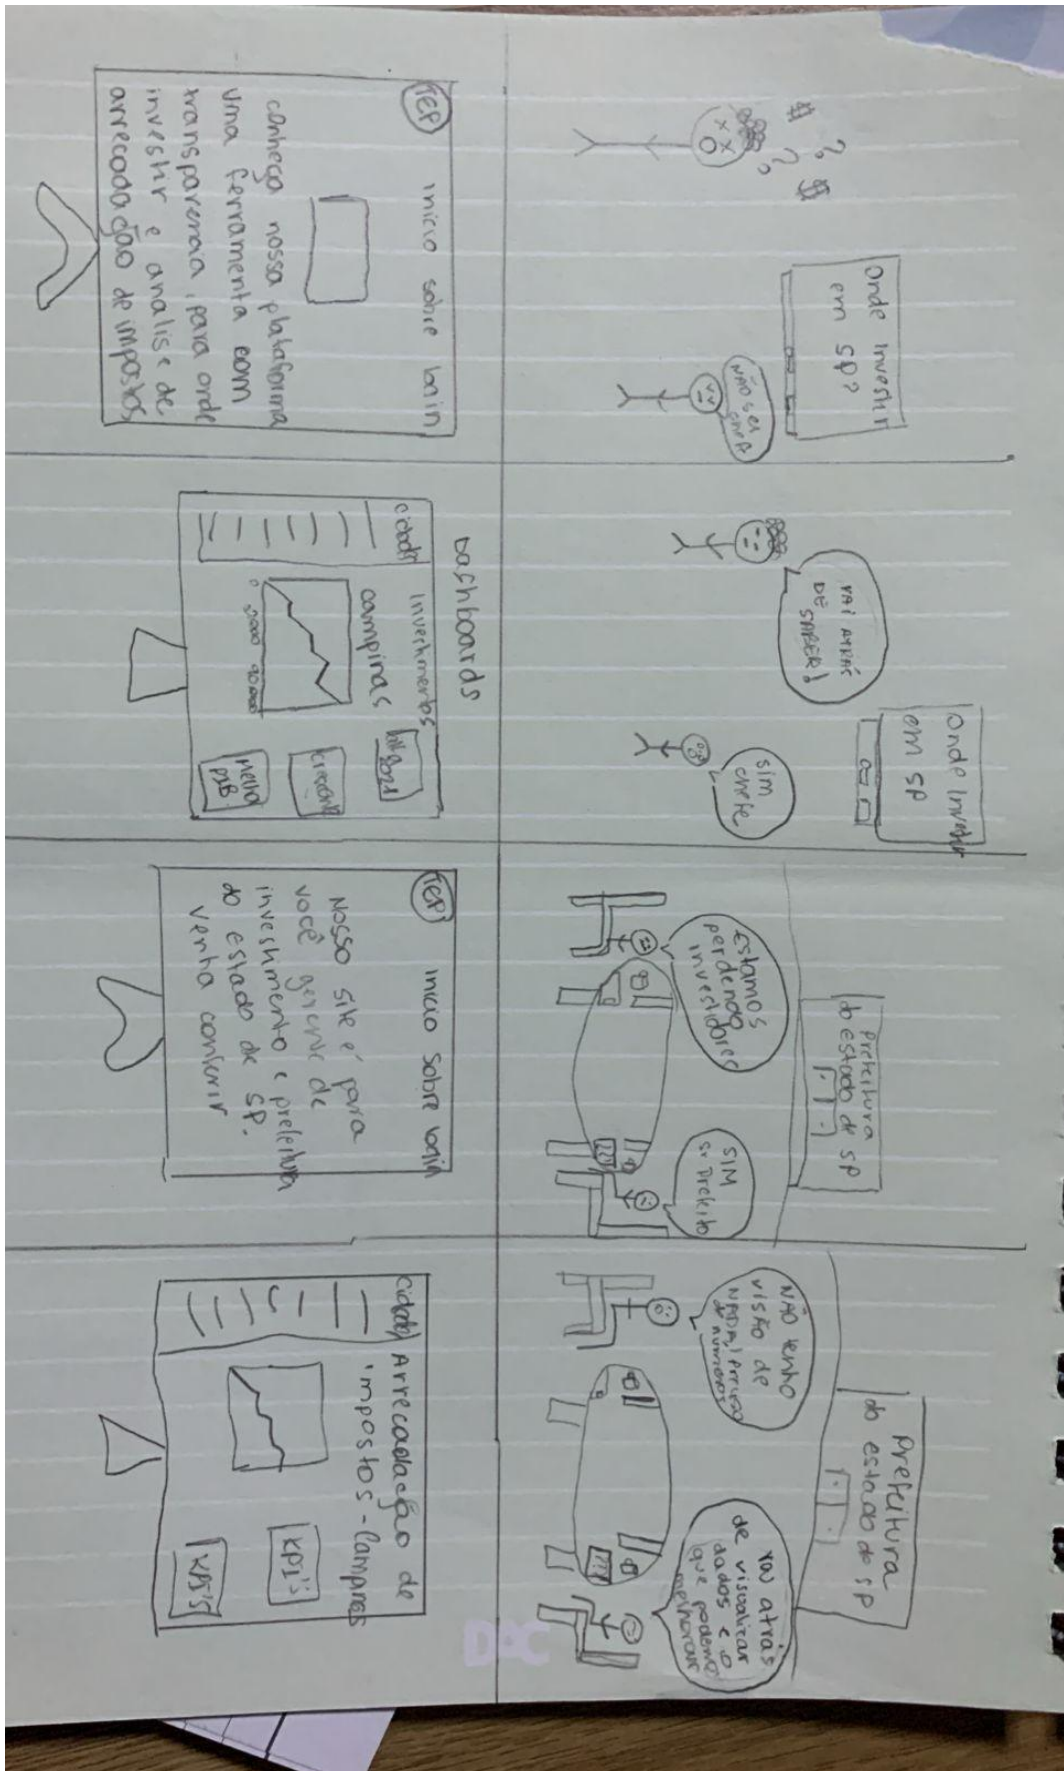 $ ? $ ?
Onde Investir
em SP?
NÃO SEI
CHEFE
VAI ATRÁS
DE
SABER!
onde Investir
em SP
sim
chefe
Prefeitura
do estado de SP
Estamos
perdendo
investidores
SIM
sr Prefeito
Prefeitura
do estado de SP
NÃO tenho
visão de
NADA! Preciso
de numeros
vou atrás
de visualizar
dados e o
que podemos
melhorar
TEP
inicio sobre login
conheça nossa plataforma
uma ferramenta com
transparencia, para onde
investir e analise de
arrecadação de impostos
Dashboards
cidades
Investimentos
campinas
0
Melho
PIB
TEP
inicio sobre login
Nosso site é para
você gerente de
investimento e prefeitura
do estado de SP.
venha conferir
cidades
Arrecadação de
impostos - Campinas
KPI's
KPI's
DBC